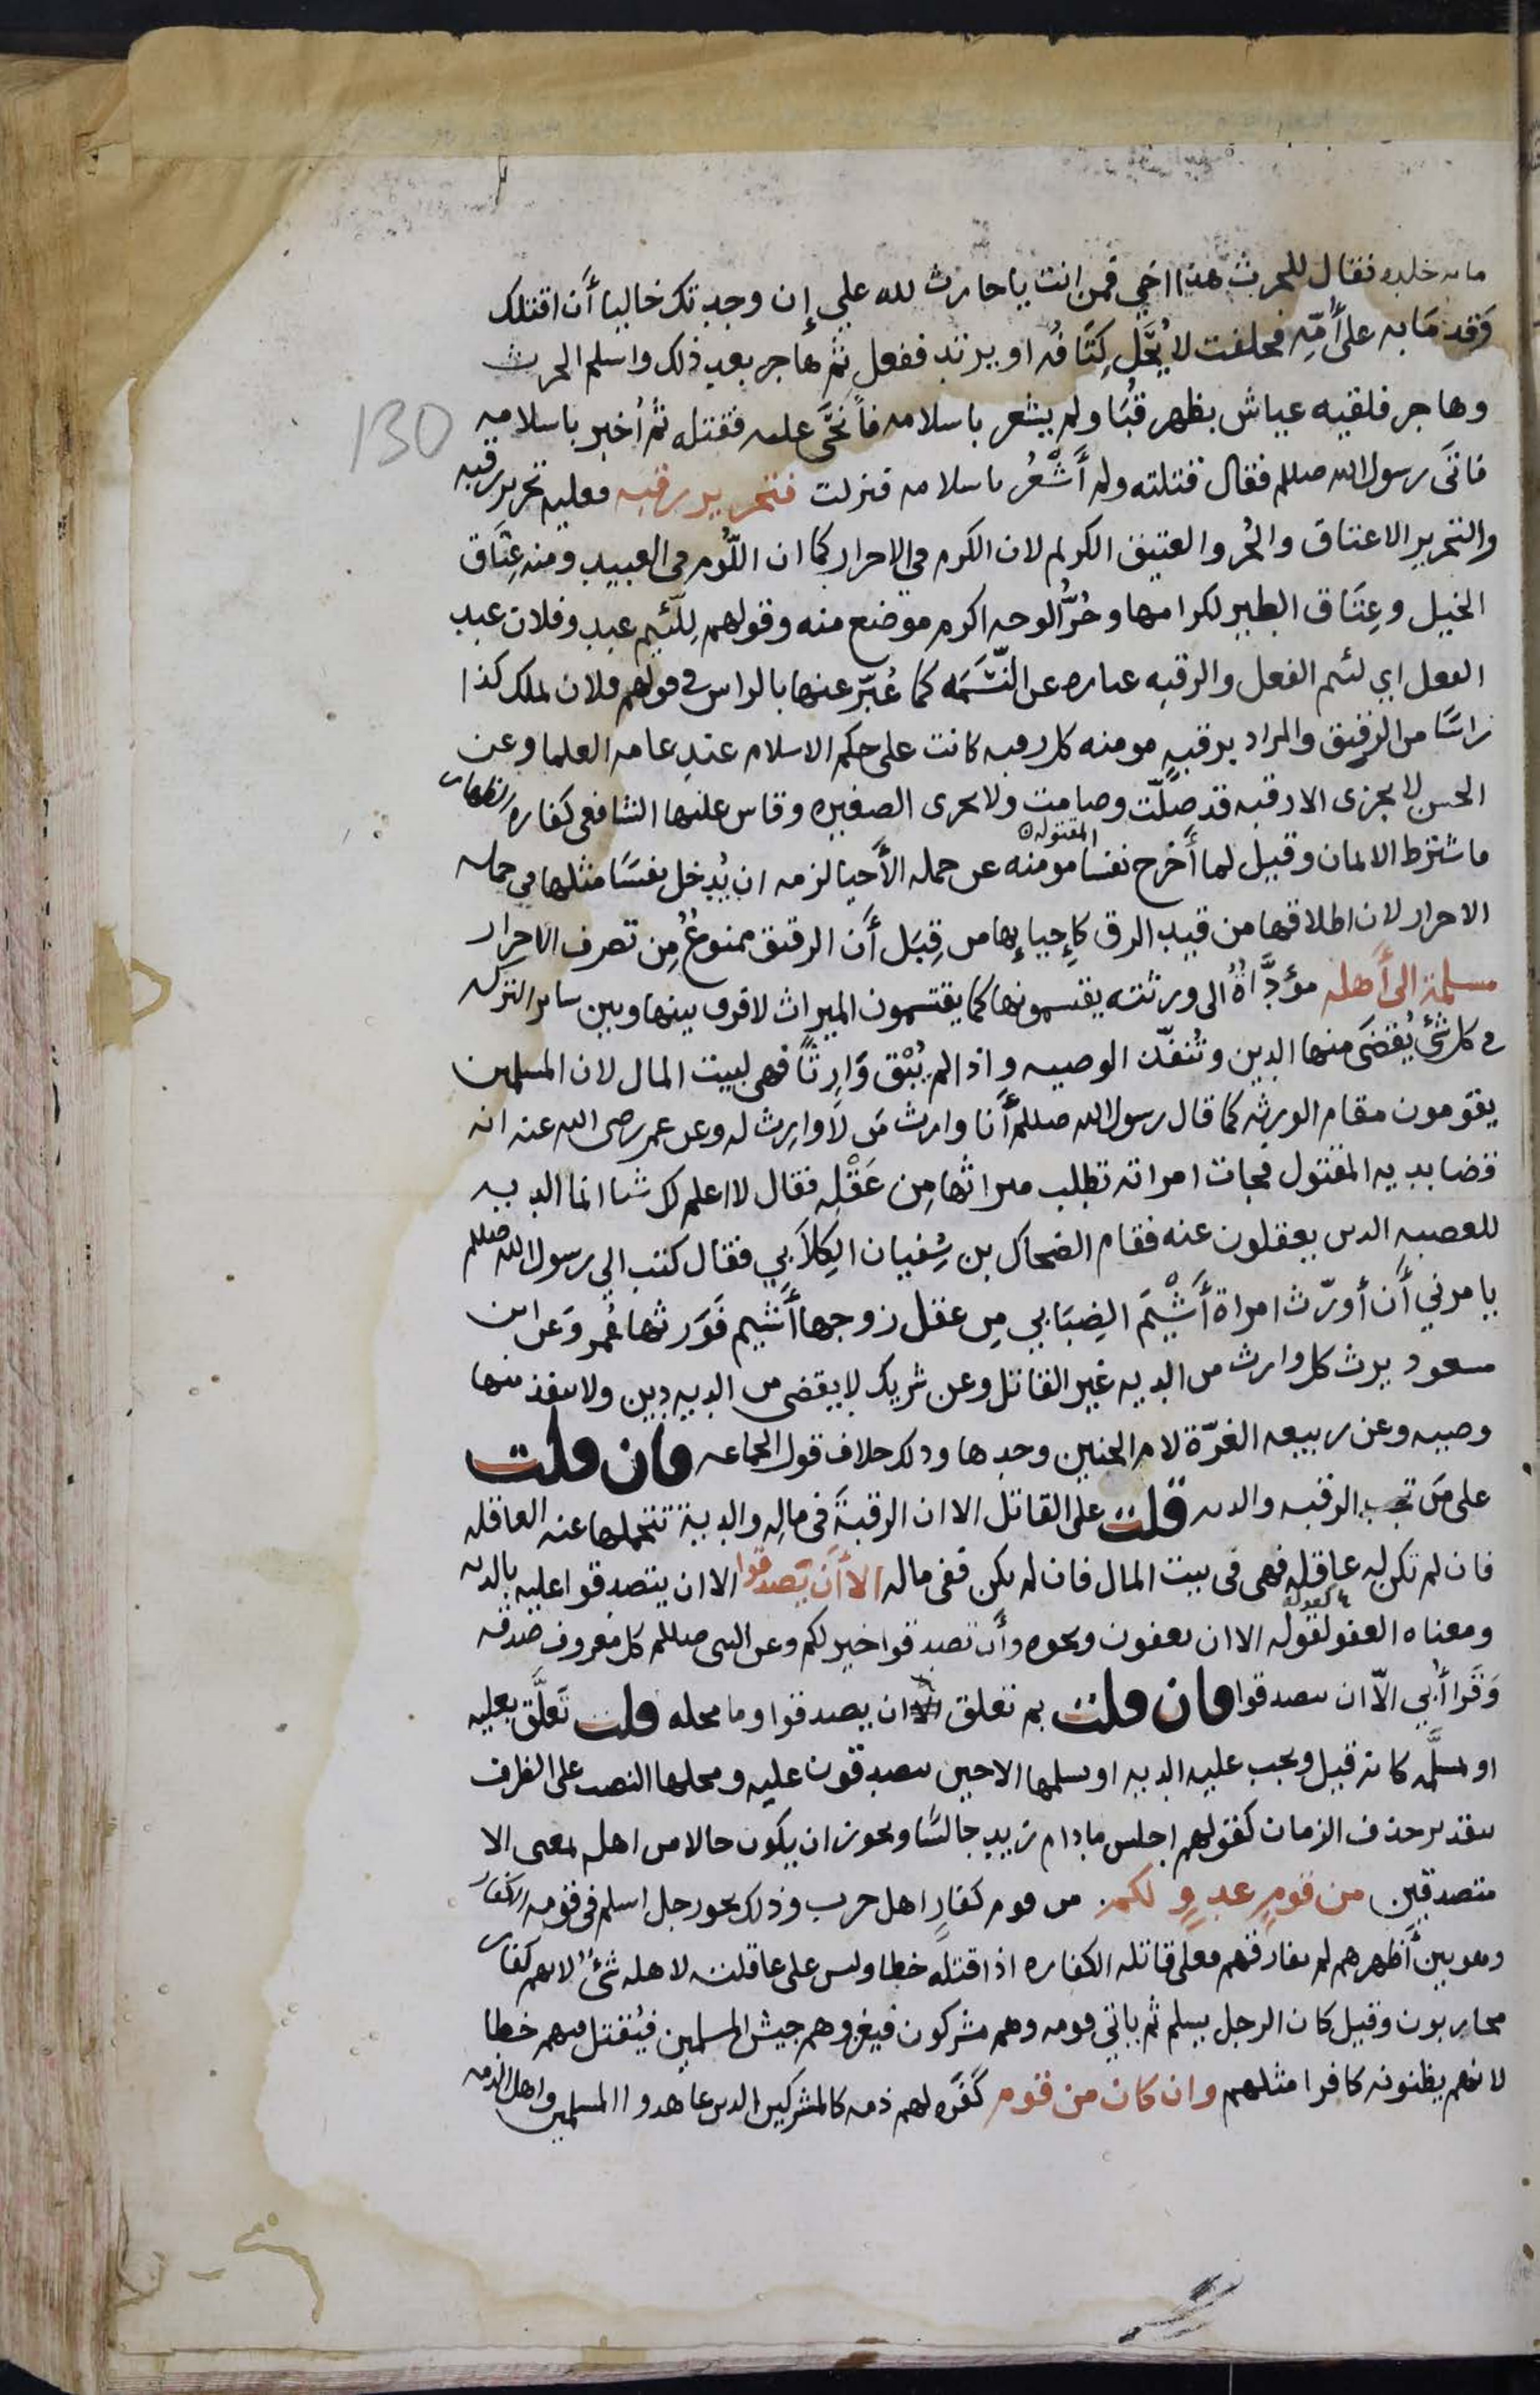 مايه جلده فقال للحرث هذا اخي فمن انت يا حارث لله علي إن وجدتك خاليا أن اقتلك
وقدما به على أمّه فحلفت لا يُحَلّ كِتَافُه او يرتد ففعل ثم هاجر بعد ذلك واسلم الحرث
وهاجر فلقيه عياش بظهر قُبَا ولم يشعر باسلامه فأنحَى عليه فقتله ثم أُخبر باسلامه
فاتَى رسول الله صللم فقال قتلته ولم أَشْعُر باسلامه فنزلت فتحرير رقبه فعليه تحرير رقبه
والتحرير الاعتاق والحُر والعتيق الكريم لان الكرم في الاحرار كما ان اللُّوم في العبيد ومنه عِتَاق
الخيل وعِتَاق الطير لكرامها وحُرُّ الوجه اكرم موضع منه وقولهم لِلّئيم عبد وفلان عبد
الفعل اي لئيم الفعل والرقبه عباره عن النَّسَمَه كما عُبّر عنها بالراس في قولهم فلان يملك كذا
رَاسًا من الرقيق والمراد برقبهٍ مومنه كل رقبه كانت على حكم الاسلام عند عامه العلما وعن
الحسن لا يجزى الا رقبه قد صلّت وصامت ولا يجزى الصغيره وقاس عليها الشافعي كفاره الظهار
فاشترط الايمان وقيل لما أَخْرج نفسا مومنه المقتوله عن جمله الأَحيا لزمه ان يُدخل نفسَا مثلها في جمله
الاحرار لان اطلاقها من قيد الرق كإِحيايِها من قِبَل أَن الرقيق ممنوعٌ مِن تصرف الاحرار
مسلمة الى أهله مؤدَّاةٌ الى ورثته يقتسمونها كما يقتسمون الميراث لا فرق بينها وبين ساير التركه
في كل شئ يُقضَى منها الدين وتُنفَّذ الوصيه واذا لم يُبْق وَارِثًا فهى لبيت المال لان المسلمين
يقومون مقام الورثه كما قال رسول الله صللم أنا وارث مَن لا وارث له وعن عمر رضى الله عنه انه
قضا بديه المقتول فجات امراته تطلب ميراثها مِن عَقْلِه فقال لا اعلم لك شيا انما الديه
للعصبه الذين يعقلون عنه فقام الضحاك بن سُفيان الكِلَابي فقال كتب الي رسول الله صللم
يامرني أَن أورّث امراة أَشْيَم الضِبَابي مِن عقل زوجها أَشيم فَوَرثها عُمر وَعن ابن
مسعود يرث كل وارث من الديه غير القاتل وعن شريك لا يقضى من الديه دين ولا ينفذ منها
وصيه وعن ربيعه الغرّة لام الجنين وحدها وذلك خلاف قول الجماعه فان قلت
على مَن تجب الرقبه والديه قلت على القاتل الا ان الرقبةَ في مالِه والدية تتحملها عنه العاقله
فان لم تكن له عاقله فهى فى بيت المال فان لم يكن ففى ماله الا أَن يَصّدقوا الا ان يتصدقوا عليه بالديه
ومعناه العفو لقوله كقوله الا ان يعفون ونحوه وأن تصدقوا خير لكم وعن النبى صللم كل معروف صدقه
وَقَرا أُبي الّا ان يتصدقوا فان قلت بم تعلق ان يصدقوا وما محله قلت تَعلَّق بعليه
او بمسلَّمه كانه قيل ويجب عليه الديه او يسلمها الا حين يتصدقون عليه ومحلها النصب على الظرف
بتقدير حذف الزمان كقولهم اجلس مادام زيد جالسَا ويجوز ان يكون حالا من اهله بمعنى الا
متصدقين من قومٍ عدوٍ لكم من قوم كفارٍ اهل حرب وذلك نحو رجل اسلم فى قومه الكفار
وهو بين أَظهرهم لم يفارقهم فعلى قاتله الكفاره اذا قتله خطا وليس على عاقلته لاهله شئ لانهم كفار
محاربون وقيل كان الرجل يسلم ثم ياتي قومه وهم مشركون فيغزوهم جيش المسلمين فيُقتل فيهم خطا
لانهم يظنونه كافرا مثلهم وان كان من قوم كَفَره لهم ذمه كالمشركين الذين عاهدوا المسلمين واهل الذمه
130